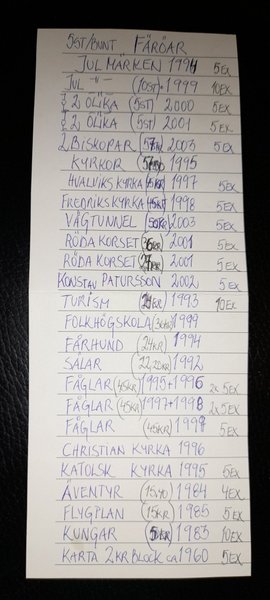 5ST/BUNT FÄRÖAR
JULMÄRKEN 1994 5EX
JUL -"- (10ST) 1999 10EX
2 OLIKA (5ST) 2000 5EX
2 OLIKA (5ST) 2001 5EX
2 BISKOPAR 2003 5EX
KYRKOR 1995
HVALVIKS KYRKA 1997 5EX
FREDRIKS KYRKA 1998 5EX
VÄGTUNNEL 2003 5EX
RÖDA KORSET 2001 5EX
RÖDA KORSET 2001 5EX
KONSTAV PATURSSON 2002 5EX
TURISM 1993 10EX
FOLKHÖGSKOLA 1999
FÅRHUND (24KR) 1994
SÄLAR 1992
FÅGLAR (45KR) 1995+1996 2x5EX
FÅGLAR (45KR) 1997+1998 2x5EX
FÅGLAR (45KR) 5EX
CHRISTIAN KYRKA 1996
KATOLSK KYRKA 1995 5EX
ÄVENTYR 1984 4EX
FLYGPLAN (15KR) 1985 5EX
KUNGAR 1983 10EX
KARTA 2KR BLOCK ca 1960 5EX